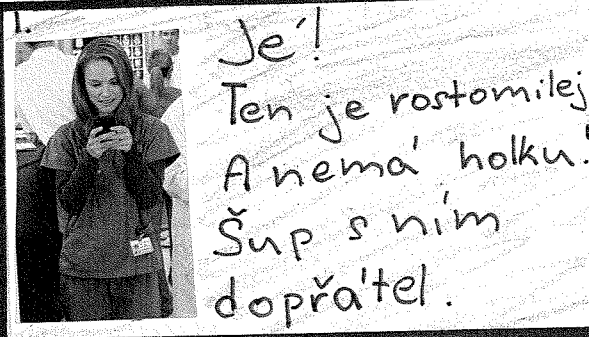 1.
Jé!
Ten je roztomilej
A nemá holku!
Šup s ním
dopřátel.